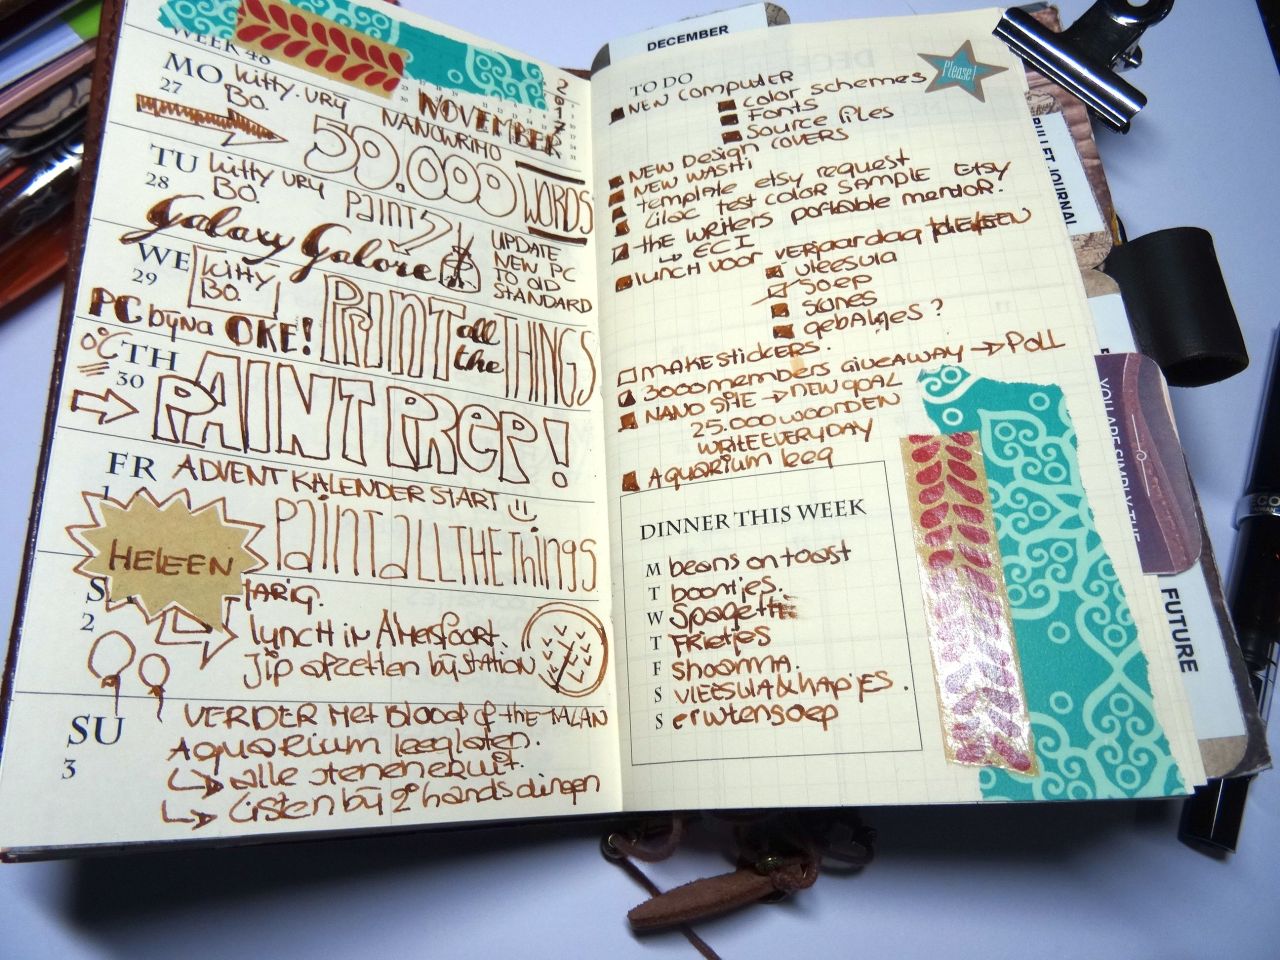 WEEK 48
MO Kitty. URY
27 Bo.
NOVEMBER
2017
NANOWRIMO
50.000 WORDS
TU Kitty URY
28 Bo.
PAINT
Galaxy Galore
UPDATE
NEW PC
TO OLD
STANDARD
WE Kitty
29 Bo.
PC bijna OKE!
PRINT all the THINGS
TH
30
PAINT PREP!
FR ADVENT KALENDER START
1
HELEEN
Paint ALL THE Things
S
2
JARIG.
lunch in Amersfoort.
Jip afzetten bij station
SU
3
VERDER Met Blood of the TALAN
Aquarium leeglaten.
alle stenen eruit.
Listen bij 2e hands dingen
DECEMBER
TO DO
Please!
NEW COMPUTER
color schemes
Fonts
Source files
NEW Design COVERS
NEW WASHI
template etsy request
Lilac test color SAMPLE Etsy
the writers portable mentor.
ECI
lunch voor verjaardag HELEEN
vleessla
Soep
gebakjes?
MAKE STICKERS.
3000 members GIVEAWAY → POLL
NANO SITE → NEW GOAL
25.000 WOORDEN
WRITE EVERYDAY
Aquarium leeg
DINNER THIS WEEK
M beans on toast
T boontjes.
W Spagetti
T Frietjes
F Shoarma.
S VLEESSLA & HAPJES.
S erwtensoep
BULLET JOURNAL
YOU ARE SIMPLY THE
FUTURE